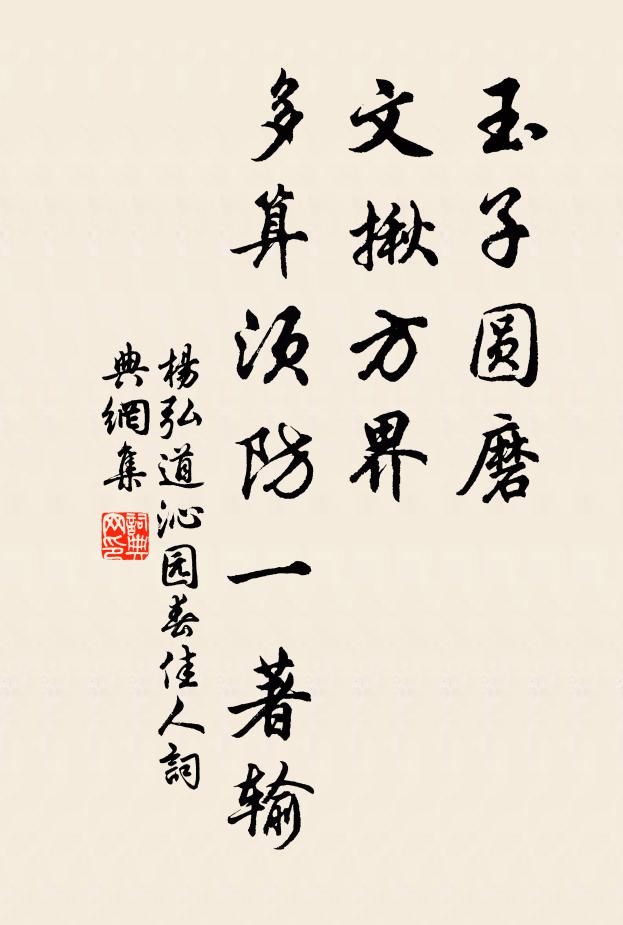 玉子圆磨
文揪方界
多算须防一著输
楊弘道沁园春佳人詞
典網集
詞典网印